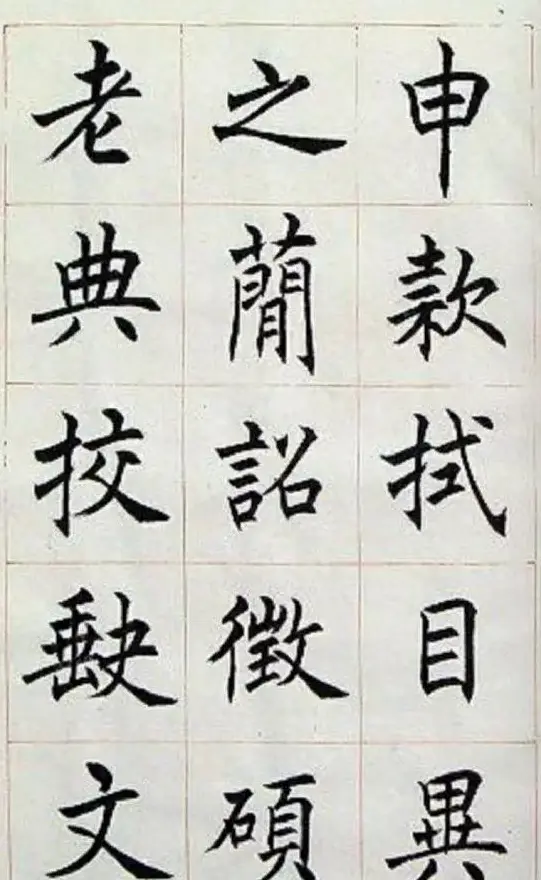 申款拭目異
之蕳詔徵碩
老典挍𡙇文